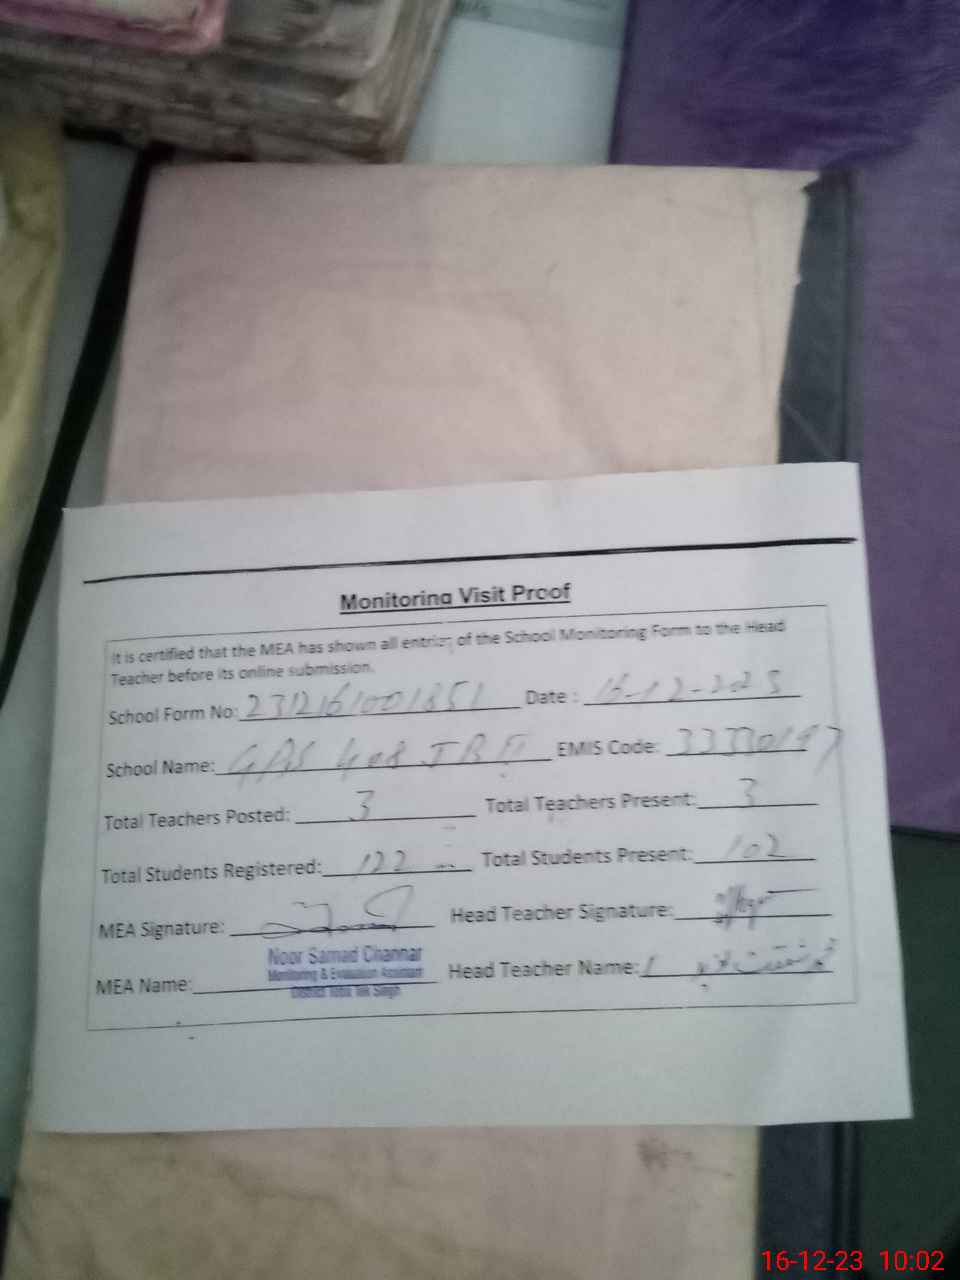 Monitoring Visit Proof
It is certified that the MEA has shown all entries of the School Monitoring Form to the Head
Teacher before its online submission.
School Form No: 2312161001851 Date : 16-12-2023
School Name: GPS 408 JB EMIS Code:
Total Teachers Posted: 3 Total Teachers Present: 3
Total Students Registered: 122 Total Students Present: 102
MEA Signature: Head Teacher Signature:
Noor Samad Channar
Monitoring & Evaluation Assistant
District Toba Tek Singh
MEA Name: Head Teacher Name:
16-12-23 10:02